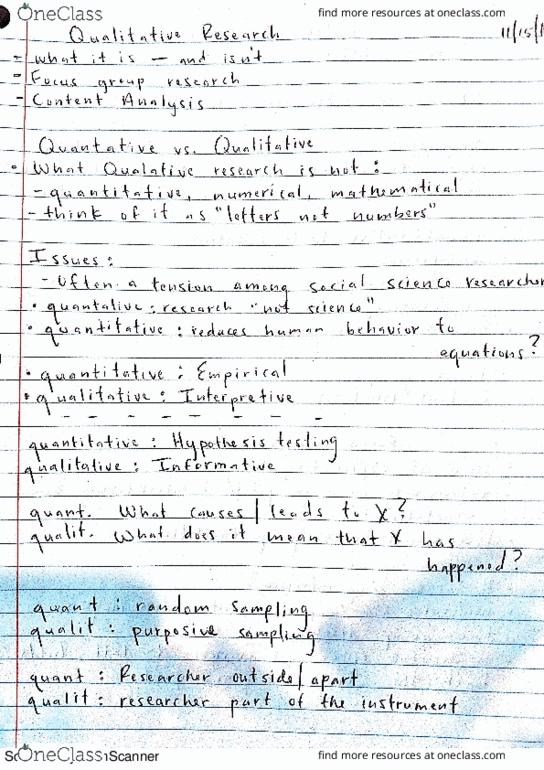 OneClass
find more resources at oneclass.com
Qualitative Research
11/15/1
- what it is - and isn't
- Focus group research
- Content Analysis
Quantative vs. Qualitative
• What Qualative research is not :
- quantitative, numerical, mathematical
- think of it as "letters not numbers"
Issues:
- Often a tension among social science researcher
• quantalive : research "not science"
• quantitative : reduces human behavior to
equations?
• quantitative : Empirical
• qualitative : Interpretive
- - - - - - -
quantitative : Hypothesis testing
qualitative : Informative
quant. What causes/leads to X?
qualit. What does it mean that X has
happened?
quant : random sampling
qualit : purposive sampling
quant : Researcher outside/apart
qualit : researcher part of the instrument
OneClass
Scanner
find more resources at oneclass.com